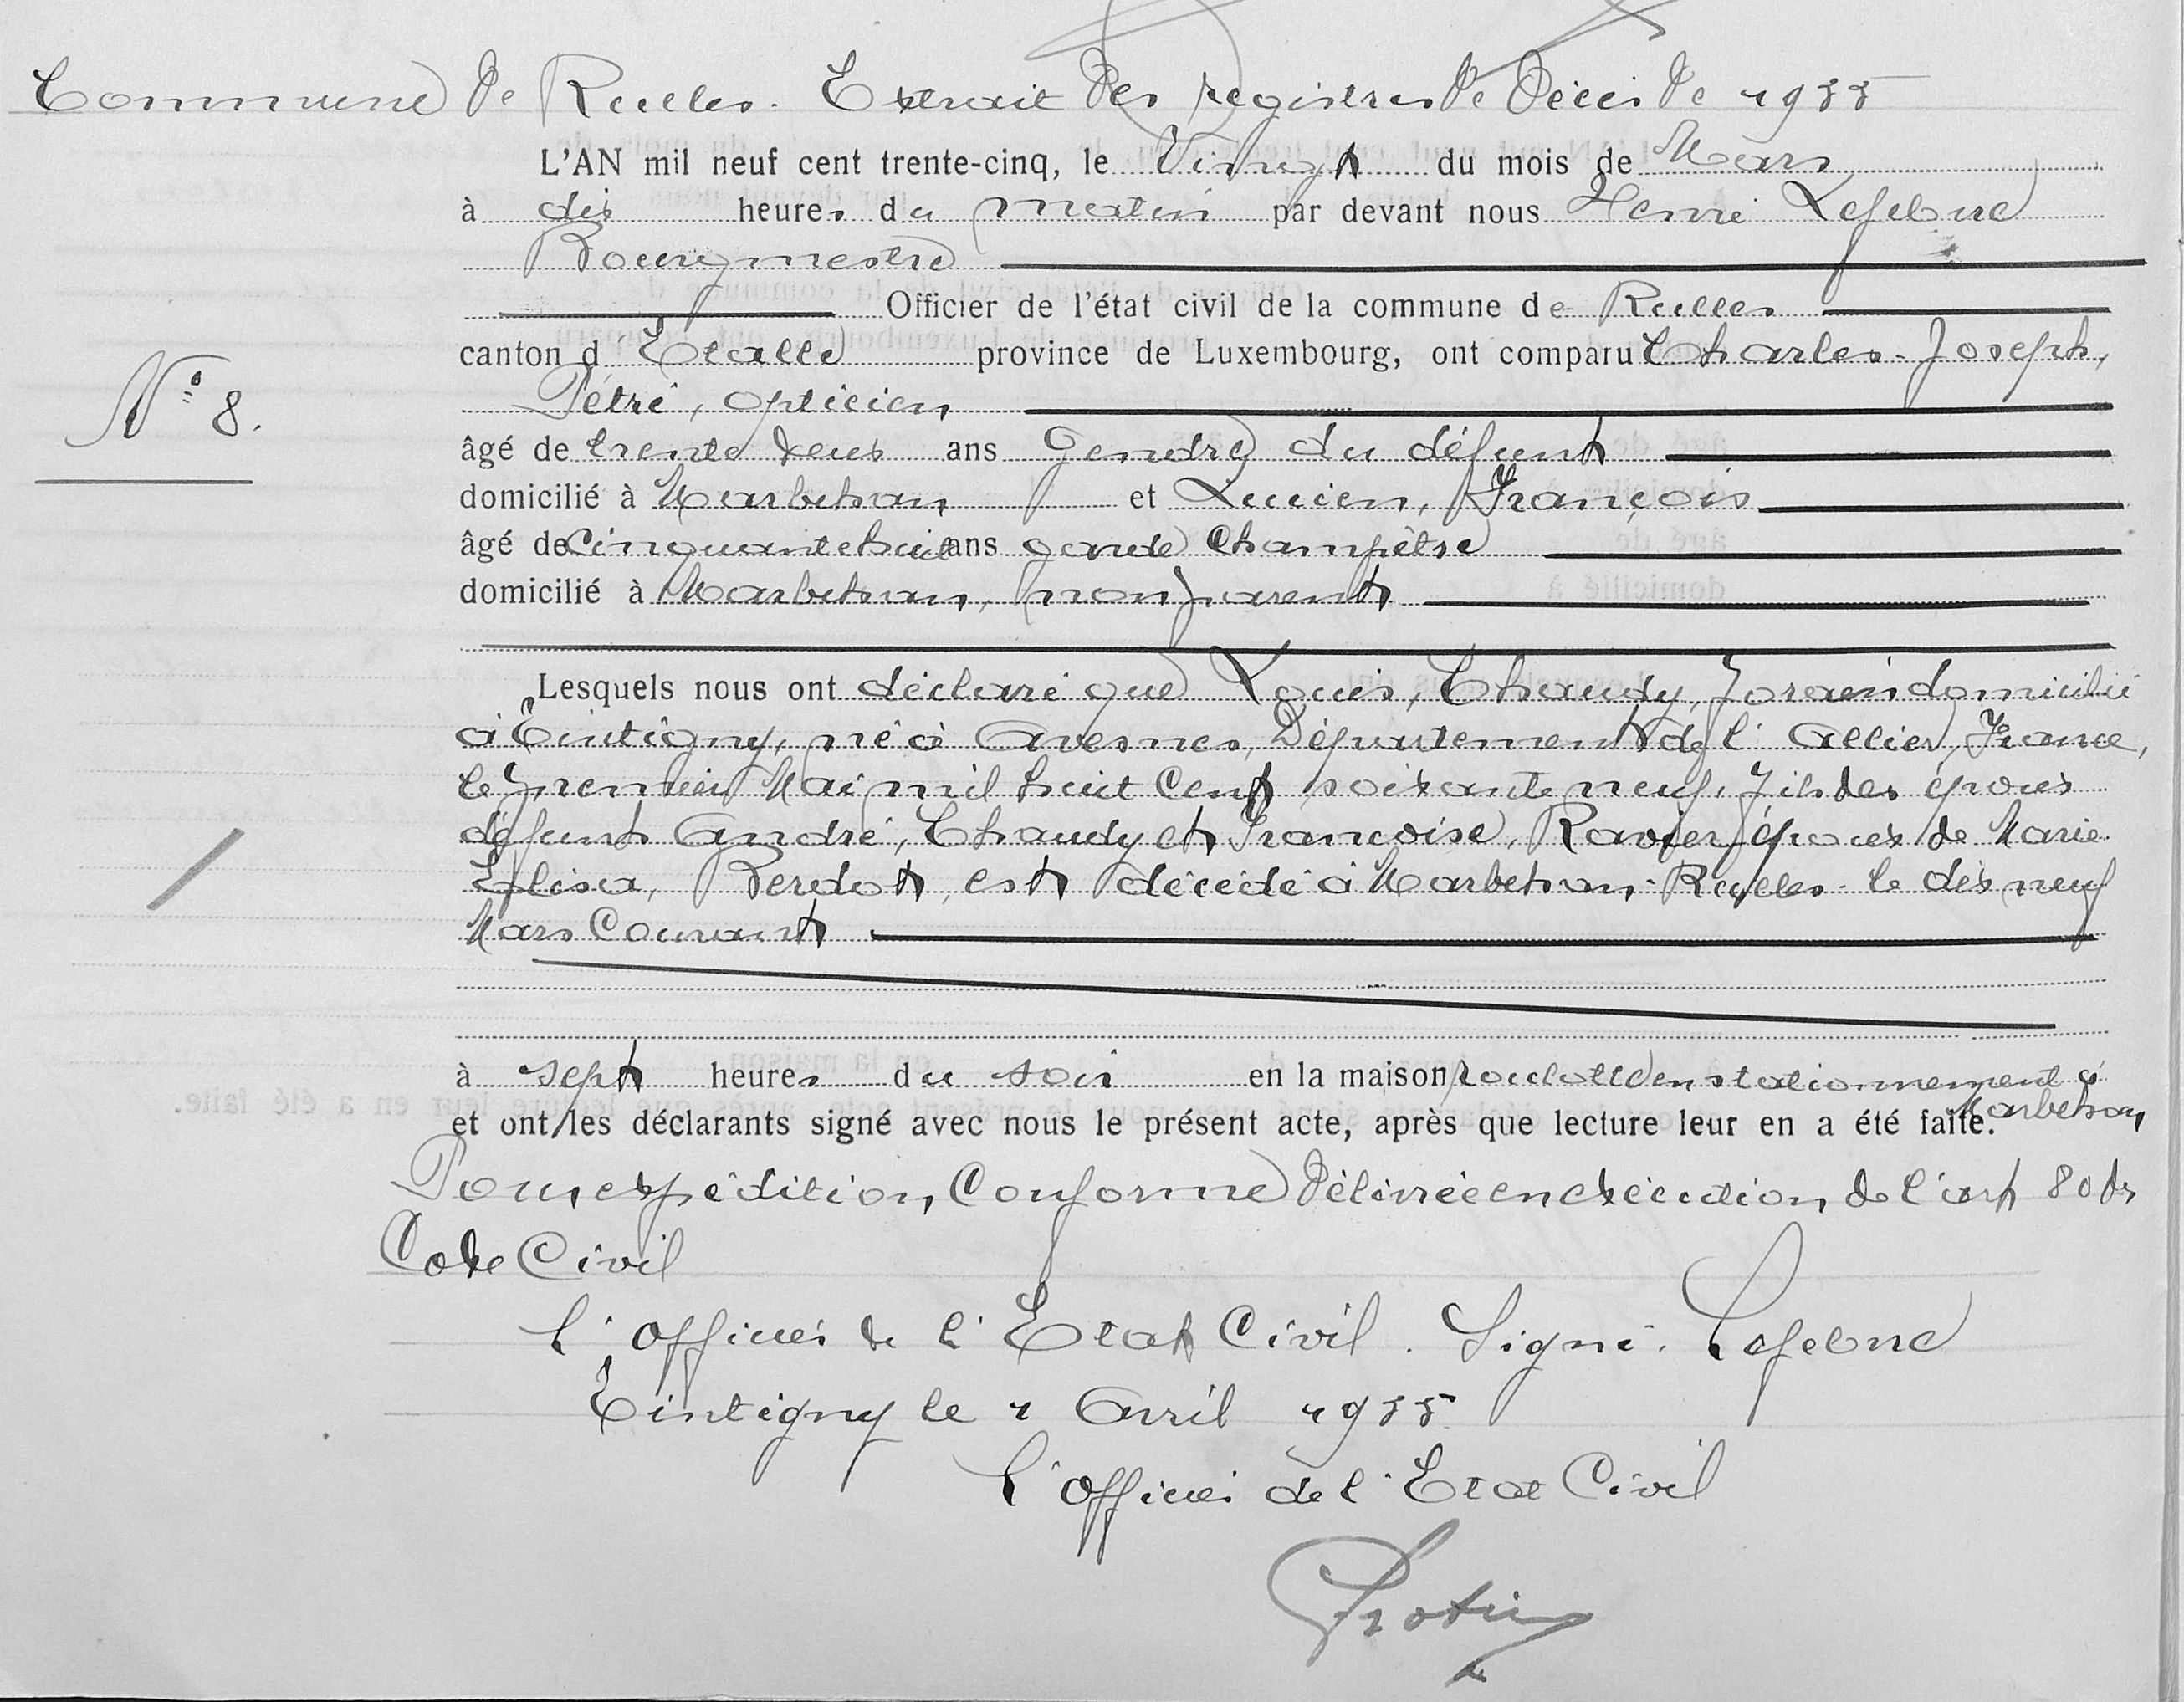 Commune de Rulles. Extrait des registres de Décès de 1935
L'AN mil neuf cent trente-cinq, le Vingt du mois de Mars
à dix heures du matin par devant nous Henri Lefebvre
Bourgmestre
Officier de l'état civil de la commune de Rulles
canton d'Etalle province de Luxembourg, ont comparu Charles-Joseph,
N° 8.
Pétré, opticien
âgé de trente deux ans Gendre du défunt
domicilié à Marbehan et Lucien, François
âgé de Cinquante huit ans garde Champêtre
domicilié à Marbehan, non parent
Lesquels nous ont déclaré que Louis, Chaudy, forain domicilié
à Tintigny, né à Avesnes, Département de l'Allier, France,
le premier Mai mil huit Cent soixante neuf, fils des époux
défunts André, Chaudy et Françoise, Ravier, époux de Marie
Elisa, Perdot, est décédé à Marbehan-Rulles le dix neuf
Mars Courant
à sept heures du soir en la maison roulotte en stationnement à
Marbehan
et ont les déclarants signé avec nous le présent acte, après que lecture leur en a été faite.
Pour expédition Conforme délivrée en exécution de l'art 80 du
Code Civil
l'officier de l'Etat Civil. Signé. Lefebvre
Tintigny le 1 Avril 1935
l'officier de l'Etat Civil